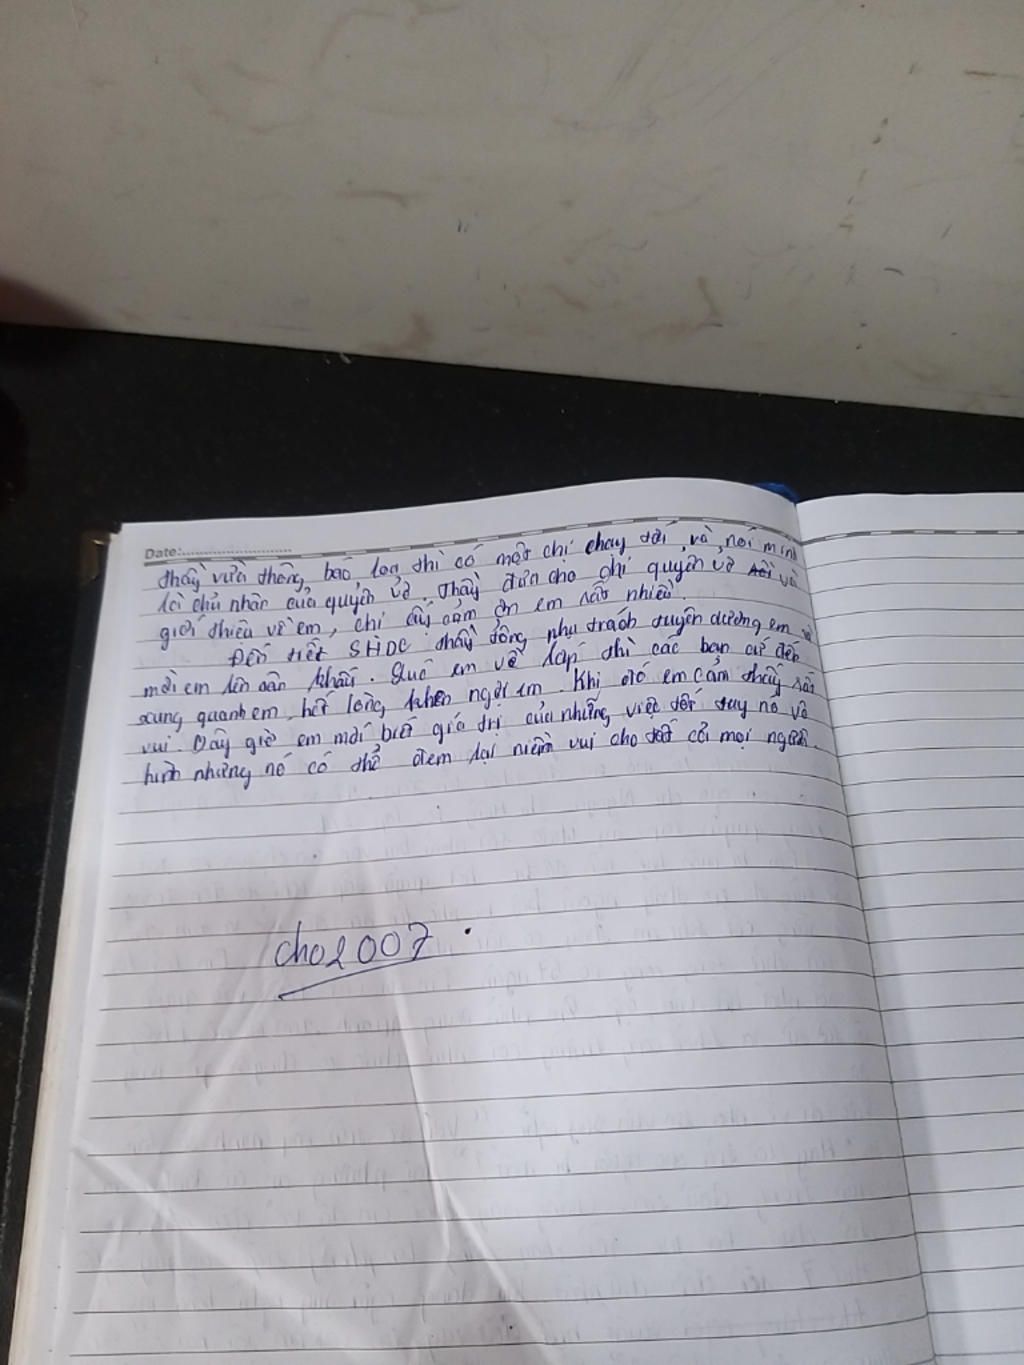 Date:
thầy vừa thông báo loa thì có một chị chạy tới, và nói mình
là chủ nhân của quyển vở. Thầy đưa cho chị quyển vở và
giới thiệu về em, chị ấy cảm ơn em rất nhiều.
Đến tiết SHDC thầy tổng phụ trách tuyên dương em và
mời em lên sân khấu. Lúc em về lớp thì các bạn cứ đến
xung quanh em, hết lòng khen ngợi em. Khi đó em cảm thấy rất
vui. Bây giờ em mới biết giá trị của những việc tốt tuy nó vô
hình nhưng nó có thể đem lại niềm vui cho tất cả mọi người.
cho2007